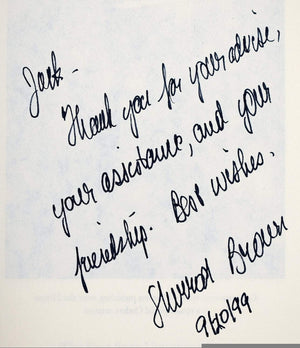 Jack-
Thank you for your advise,
your assistance, and your
friendship. Best wishes.
Sherrod Brown
9/20/99